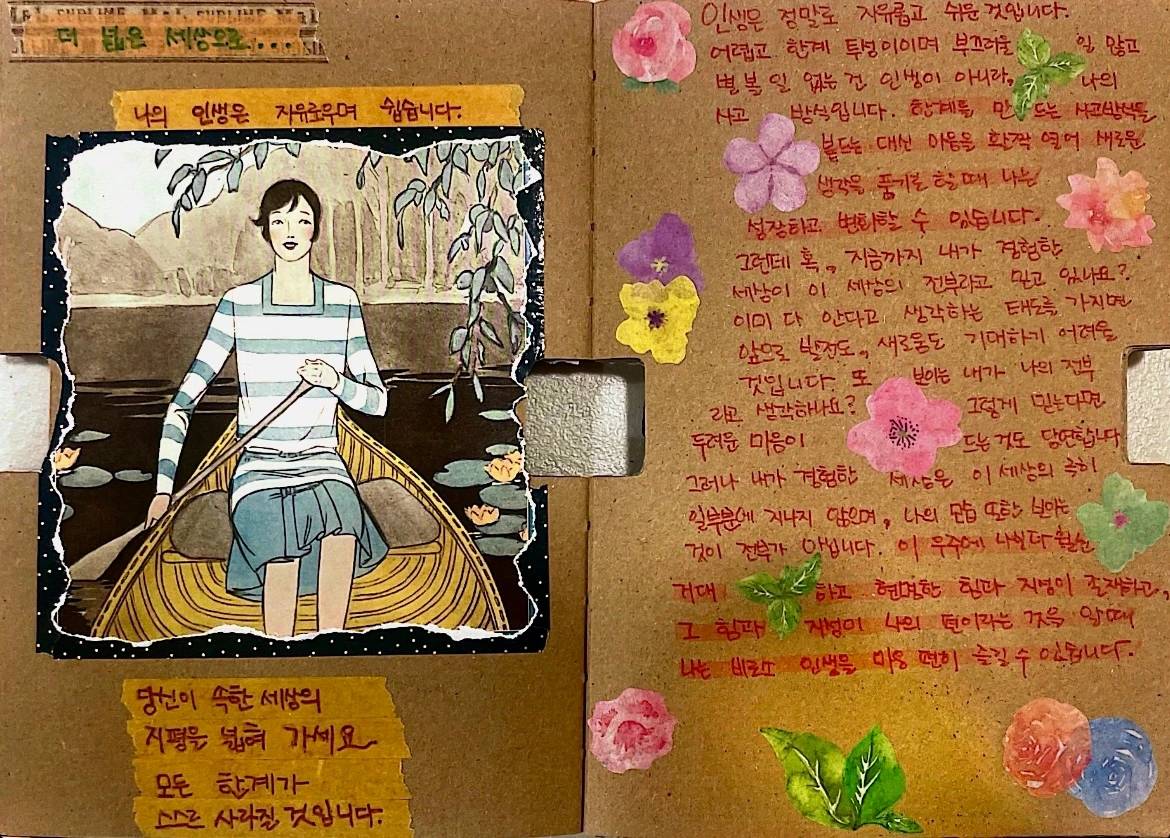 더 넓은 세상으로...
나의 인생은 자유로우며 쉽습니다.
당신이 속한 세상의
지평을 넓혀 가세요
모든 한계가
스스로 사라질 것입니다.
인생은 정말로 자유롭고 쉬운 것입니다.
어렵고 한계 투성이이며 부끄러운 일 많고
별 볼 일 없는 건 인생이 아니라, 나의
사고 방식입니다. 한계를 만드는 사고방식을
붙드는 대신 마음을 활짝 열어 새로운
생각을 품기로 할 때 나는
성장하고 변화할 수 있습니다.
그런데 혹, 지금까지 내가 경험한
세상이 이 세상의 전부라고 믿고 있나요?
이미 다 안다고 생각하는 태도를 가지면
앞으로 발전도, 새로움도 기대하기 어려울
것입니다. 또 보이는 내가 나의 전부
라고 생각하나요? 그렇게 믿는다면
두려운 마음이 드는 것도 당연합니다
그러나 내가 경험한 세상은 이 세상의 극히
일부분에 지나지 않으며, 나의 모습 또한 보이는
것이 전부가 아닙니다. 이 우주에 나보다 훨씬
거대하고 현명한 힘과 지성이 존재하고,
그 힘과 지성이 나의 편이라는 것을 알 때
나는 비로소 인생을 마음 편히 즐길 수 있습니다.